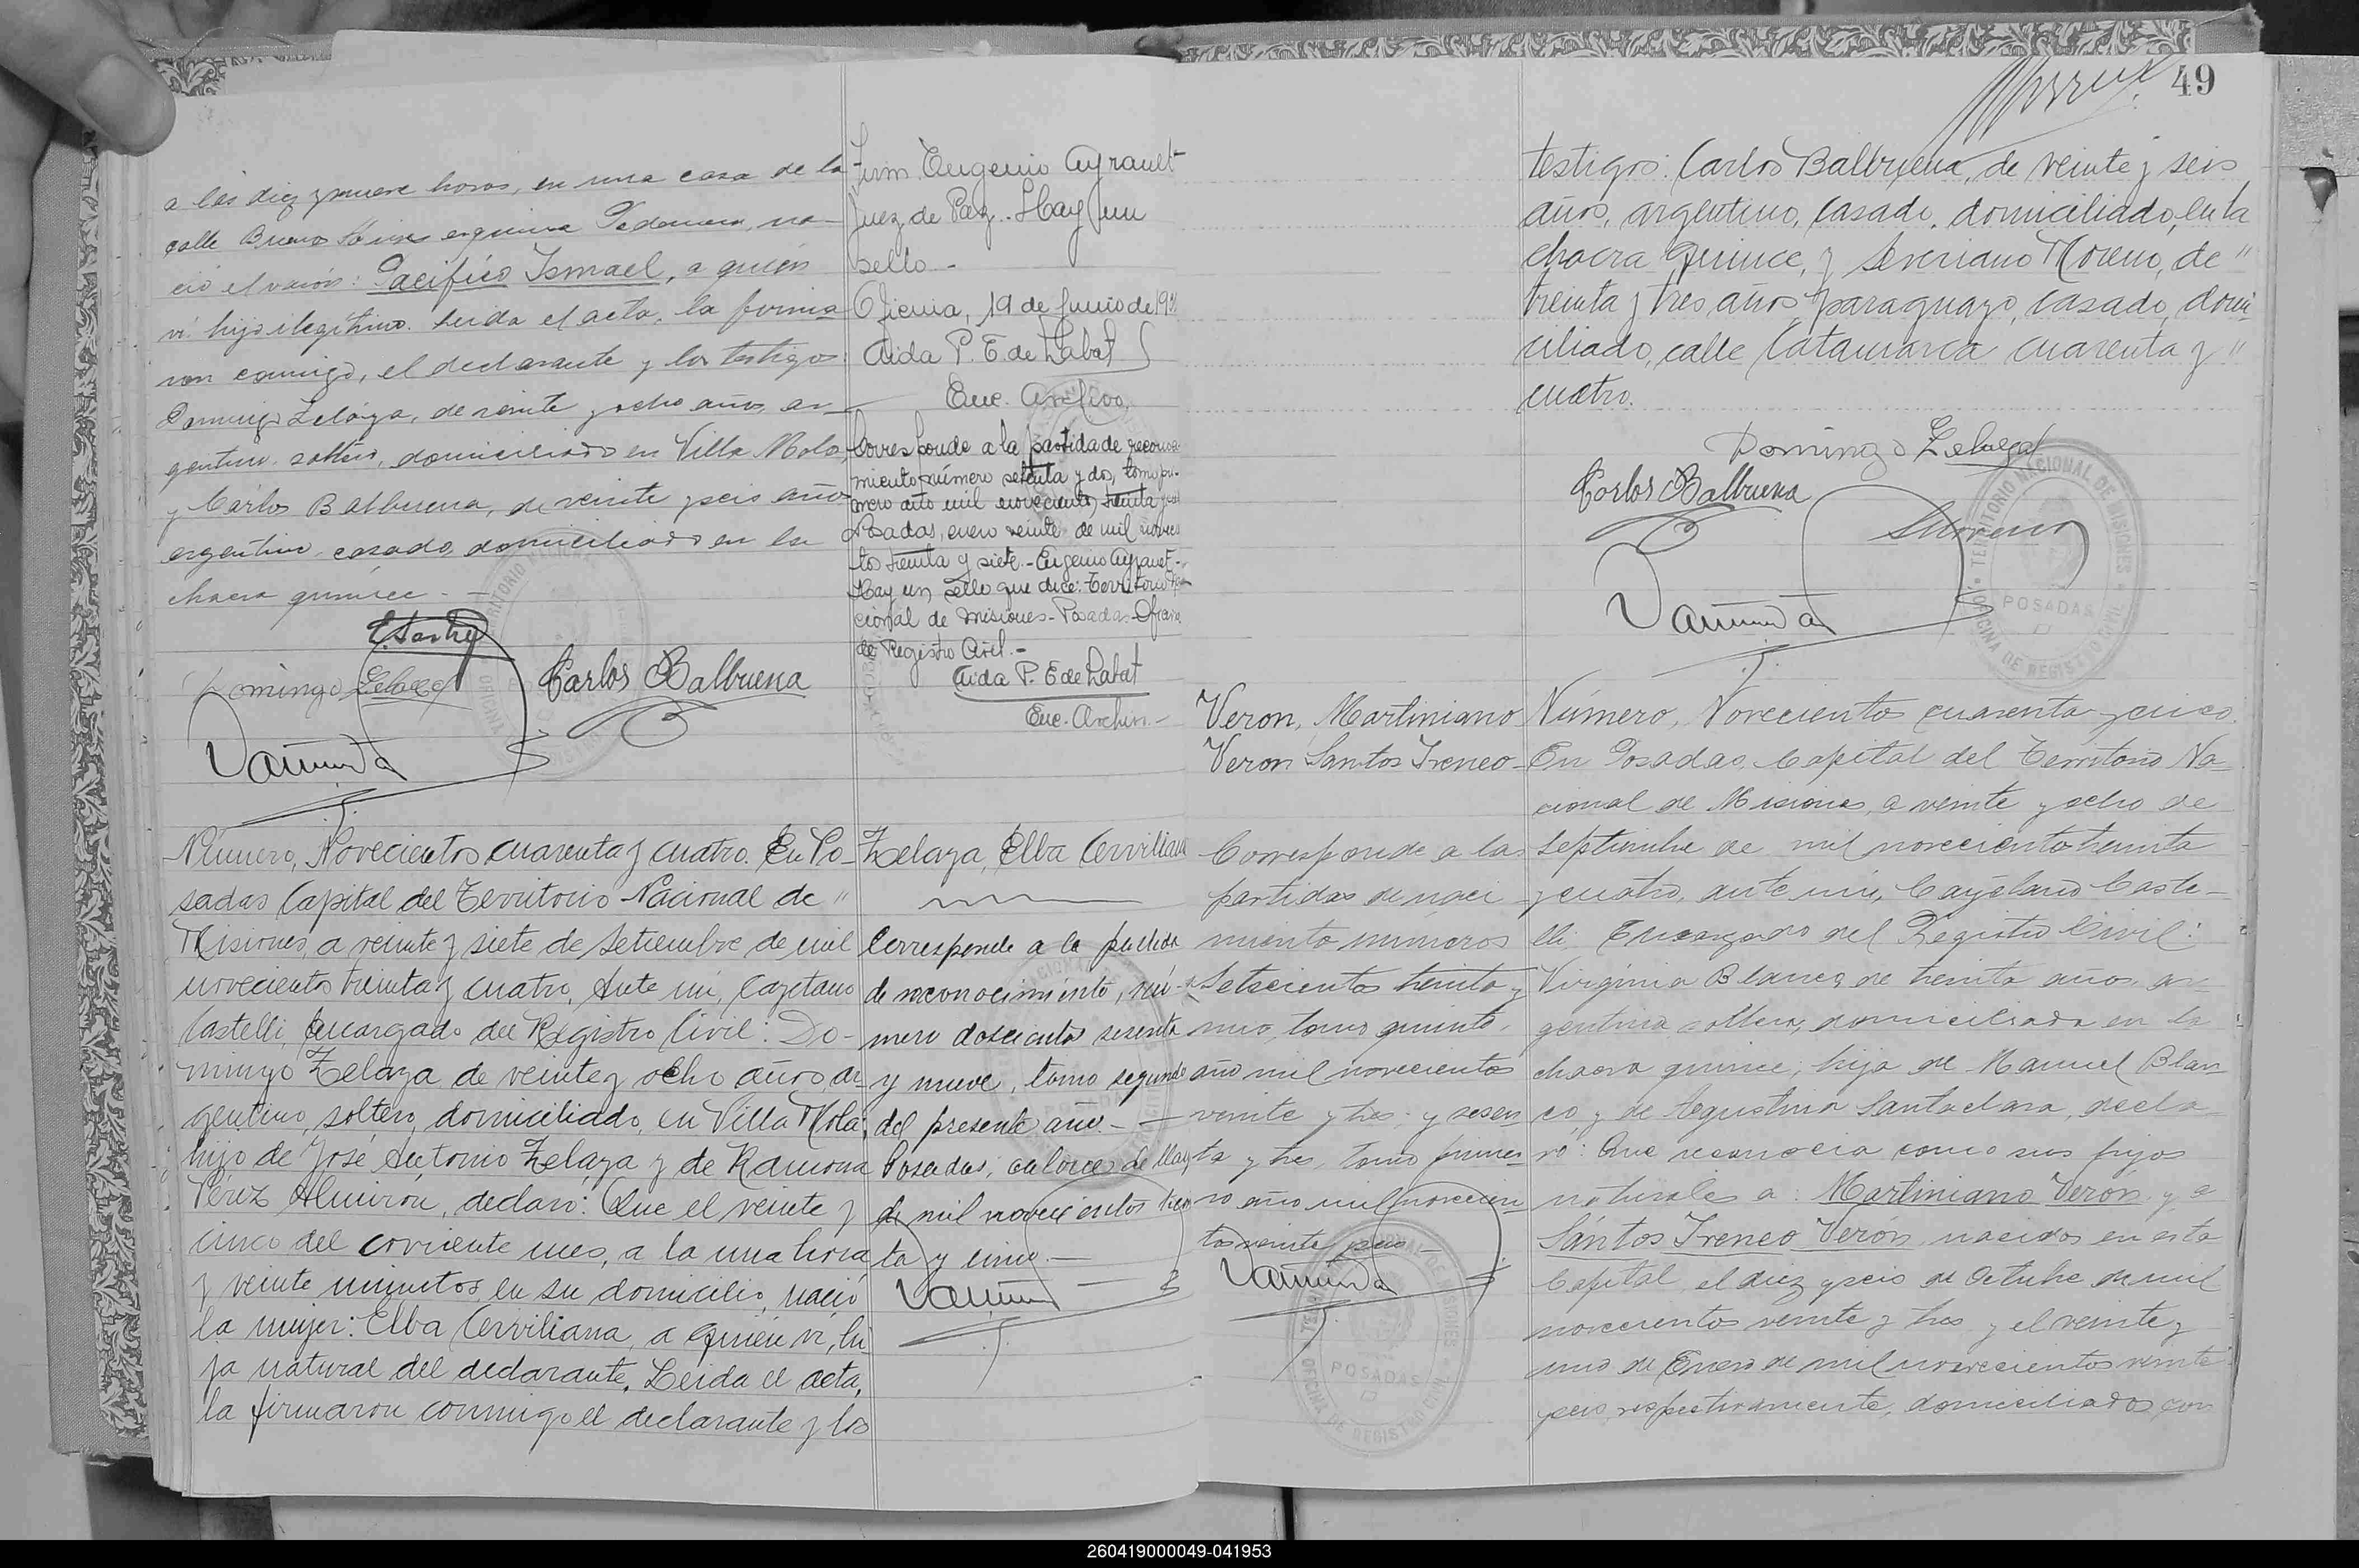 a las diez y nueve horas, en una casa de la
calle Buenos Aires esquina Pedernera, na-
ció el varón: Pacífico Ismael, a quien
ví hijo ilegítimo. Leida el acta, la firma
ron conmigo, el declarante y los testigos:
Domingo Zelaya, de veinte y ocho años, ar-
gentino, soltero, domiciliado en Villa Mola,
y Carlos Balbuena, de veinte y seis años
argentino, casado, domiciliado en la
chacra quince. -
Domingo Zelaya
Carlos Balbuena
Número, Novecientos cuarenta y cuatro. En Po-
sadas Capital del Territorio Nacional de "
Misiones, a veinte y siete de setiembre de mil
novecientos treinta y cuatro, Ante mí, Cayetano
Castelli, Encargado del Registro Civil: Do-
mingo Zelaya de veinte y ocho años ar
gentino, soltero, domiciliado, en Villa Mola;
hijo de José Antonio Zelaya y de Ramona
Pérez Almirón, declaró: Que el veinte y
cinco del corriente mes, a la una hora
y veinte minutos, en su domicilio, nació
la mujer: Elba Cerviliana, a quien ví, hi
ja natural del declarante. Leida el acta,
la firmaron conmigo el declarante y los
Eugenio Ayrault
Juez de Paz. - Hay un
sello -
Oficina, 19 de Junio de
Aida P. E. de Labat
Enc. Archivo,
Corresponde a la partida de reconoci
miento número setenta y dos, tomo pri-
mero año mil novecientos treinta y
Posadas, enero veinte de mil novecien
tos treinta y siete. - Eugenio Ayrault. -
Hay un sello que dice: Territorio Na
cional de Misiones - Posadas - Oficina
de Registro Civil. -
Aida P. E de Labat
Enc. Archivo. -
Zelaya, Elba Cerviliana
Corresponde a la partida
de reconocimiento, nú-
mero doscientos sesenta
y nueve, tomo segundo
del presente año. -
Posadas, catorce de Mayo
de mil novecientos trein
ta y cinco. -
49
testigos: Carlos Balbuena, de veinte y seis
años, argentino, casado, domiciliado, en la
chacra quince, y Severiano Moreno, de "
treinta y tres años, paraguayo, casado, domi-
ciliado, calle Catamarca cuarenta y "
cuatro.
Domingo Zelaya
Carlos Balbuena
SMoreno
TERRITORIO NACIONAL DE MISIONES
POSADAS
OFICINA DE REGISTRO CIVIL
Veron, Martiniano
Veron Santos Ireneo
Corresponde a las
partidas de naci
miento números
Setecientos treinta y
uno, tomo quinto,
año mil novecientos
veinte y tres; y sesen
ta y tres, tomo prime-
ro año mil novecien
tos veinte y seis -
POSADAS
OFICINA DE REGISTRO CIVIL
Número, Novecientos cuarenta y cinco.
En Posadas, Capital del Territorio Na-
cional de Misiones, a veinte y ocho de
septiembre de mil novecientos treinta
y cuatro, ante mí, Cayetano Caste-
lli Encargado del Registro Civil:
Virginia Blanco, de treinta años, ar-
gentina, soltera, domiciliada en la
chacra quince; hija de Manuel Blan
co, y de Agustina Santa clara, decla-
ró: Que reconocía como sus hijos
naturales a: Martiniano Verón y a
Santos Ireneo Verón nacidos en esta
Capital, el diez y seis de Octubre de mil
novecientos veinte y tres y el veinte y
uno de Enero de mil novecientos veinte
y seis, respectivamente, domiciliados con
260419000049-041953